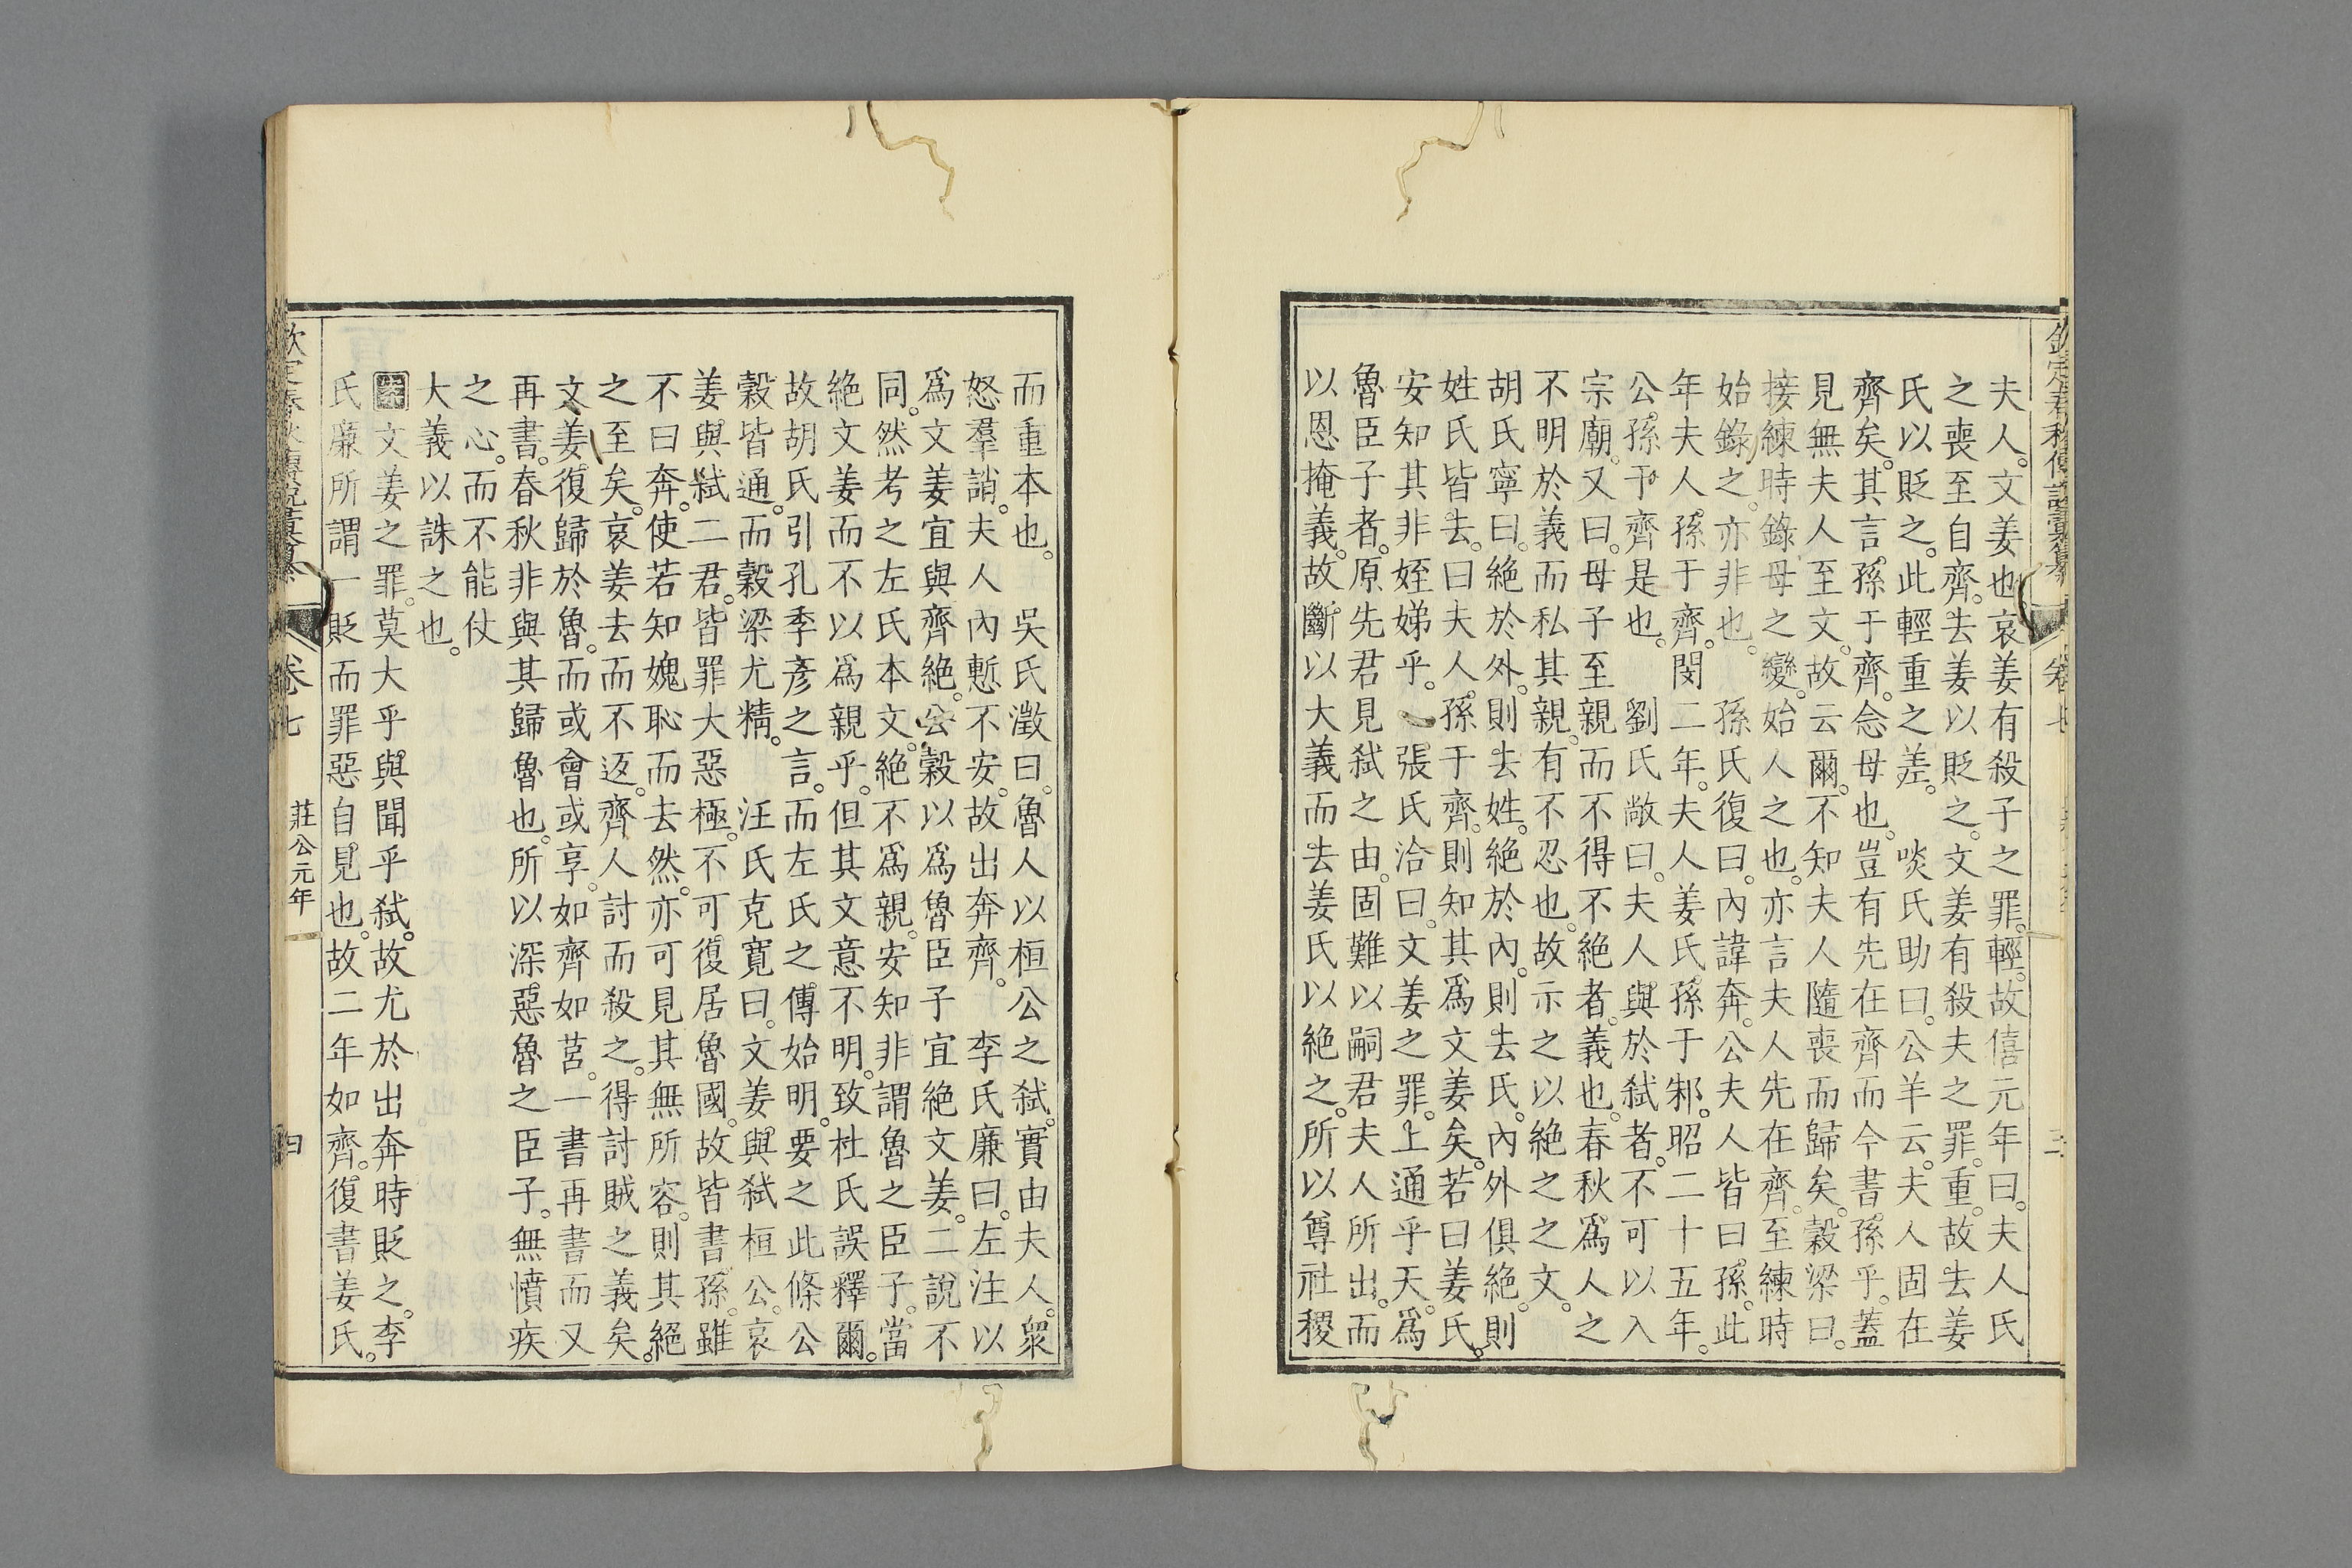 夫人。文姜也。哀姜有殺子之罪輕。故僖元年曰。夫人氏
之喪至自齊。去姜以貶之。文姜有殺夫之罪。重。故去姜
氏以貶之。此輕重之差。 啖氏助曰。公羊云。夫人固在
齊矣。其言孫于齊。念母也。豈有先在齊而今書孫乎。蓋
見無夫人至文。故云爾。不知夫人隨喪而歸矣。穀梁曰。
接練時錄母之變。始人之也。亦言夫人先在齊。至練時
始錄之。亦非也。 孫氏復曰。內諱奔。公夫人皆曰孫。此
年夫人孫于齊。閔二年。夫人姜氏孫于邾。昭二十五年。
公孫于齊是也。 劉氏敞曰。夫人與於弒者。不可以入
宗廟。又曰。母子至親而不得不絕者。義也。春秋爲人之
不明於義而私其親。有不忍也。故示之以絕之之文。
胡氏寧曰。絕於外。則去姓。絕於內。則去氏。內外俱絕。則
姓氏皆去。曰夫人。孫于齊。則知其爲文姜矣。若曰姜氏。
安知其非姪娣乎。 張氏洽曰。文姜之罪。上通乎天。爲
魯臣子者。原先君見弒之由。固難以嗣君夫人所出。而
以恩掩義。故斷以大義而去姜氏以絕之。所以尊社稷
而重本也。 吳氏澂曰。魯人以桓公之弒。實由夫人。衆
怒羣誚。夫人內慙不安。故出奔齊。 李氏廉曰。左注以
爲文姜宜與齊絕。公穀以爲魯臣子宜絕文姜。二說不
同。然考之左氏本文。絕不爲親。安知非謂魯之臣子。當
絕文姜而不以爲親乎。但其文意不明。致杜氏誤釋爾。
故胡氏引孔季彥之言。而左氏之傳始明。要之此條公
穀皆通。而穀梁尤精。 汪氏克寬曰。文姜與弒桓公。哀
姜與弒二君。皆罪大惡極。不可復居魯國。故皆書孫。雖
不曰奔。使若知媿恥而去然。亦可見其無所容。則其絕
之至矣。哀姜去而不返。齊人討而殺之。得討賊之義矣。
文姜復歸於魯。而或會或享。如齊如莒。一書再書而又
再書。春秋非與其歸魯也。所以深惡魯之臣子。無憤疾
之心。而不能仗
大義以誅之也。
案文姜之罪。莫大乎與聞乎弒。故尤於出奔時貶之。李
氏廉所謂一貶而罪惡自見也。故二年如齊。復書姜氏。
卷七 莊公元年 四